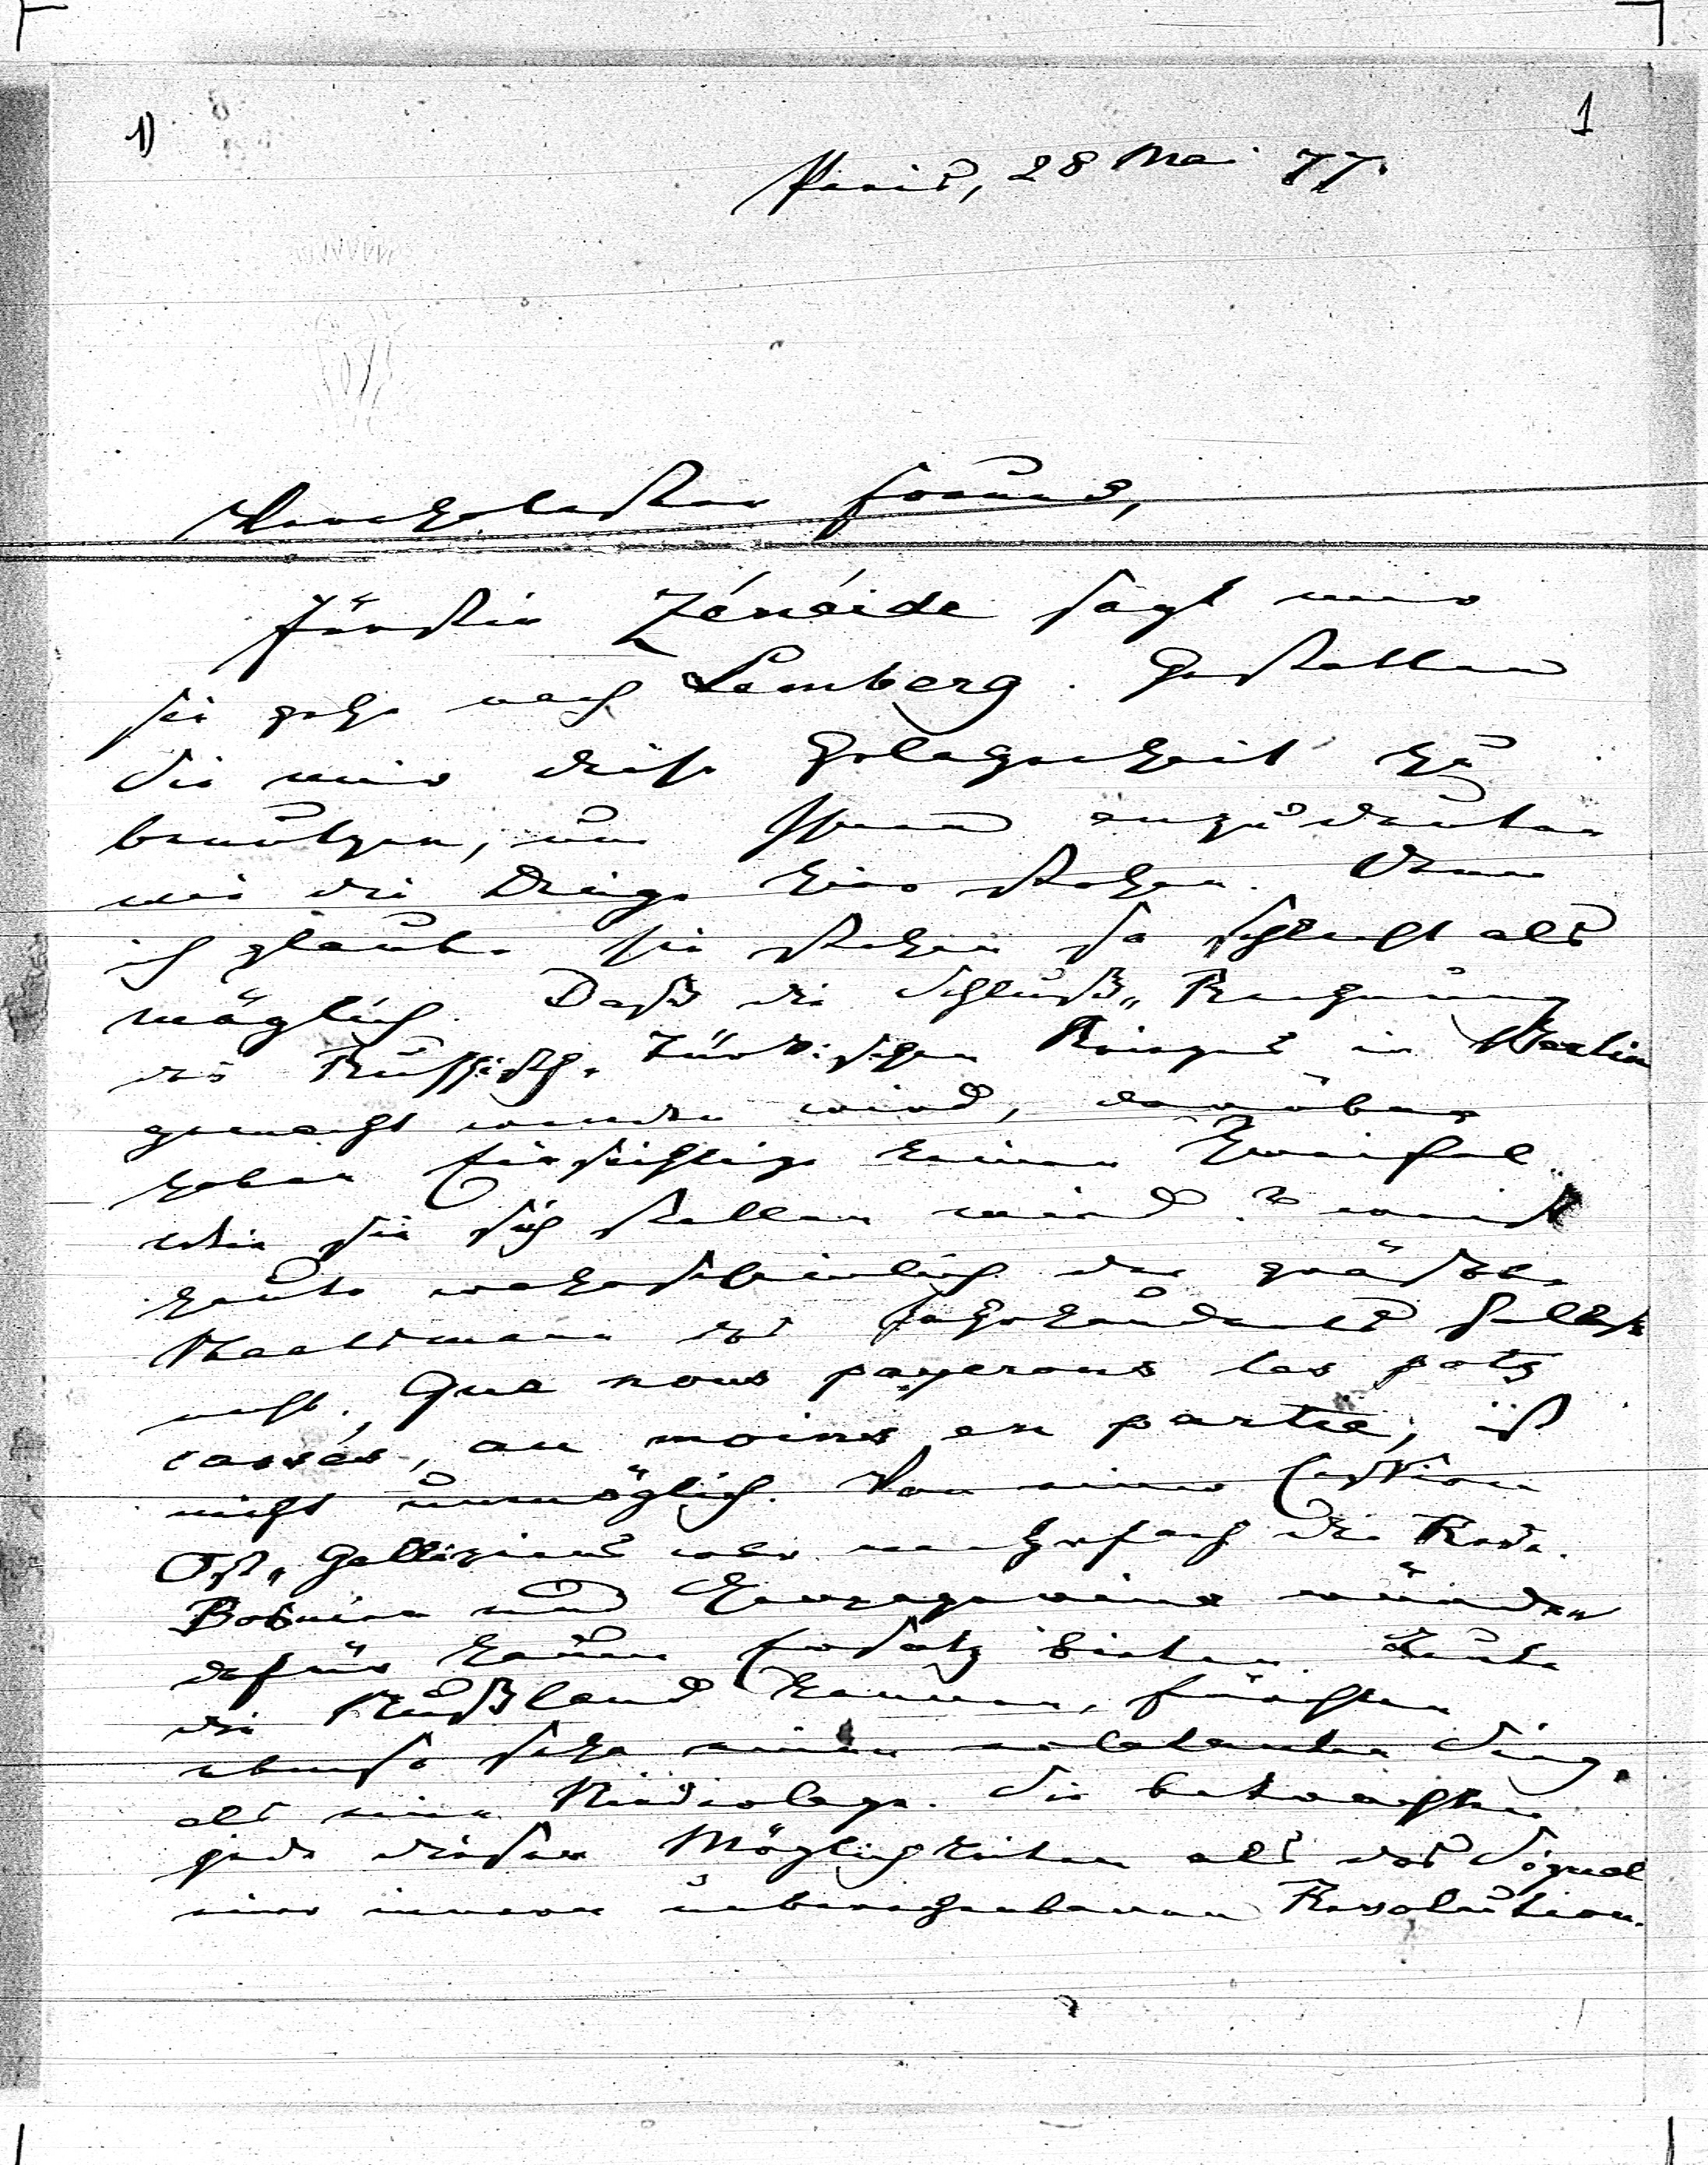 1)
1
Paris, 28 Mai 77.
Verehrtester Freund,
Fürstin Zénéïde sagt mir
sie gehe nach Lemberg. Gestatten
Sie mir diese Gelegenheit zu
benützen, um Ihnen anzudeuten
wie die Dinge hier stehen. Denn
ich glaube sie stehen so schlecht als
möglich. Daß die Schluß-Rechnung
des Russisch-Türkischen Krieges in Berlin
gemacht werden wird, darüber
haben Einsichtige keinen Zweifel.
Wie sie sich stellen wird? weiß
heute wahrscheinlich der größte
Staatsmann des Jahrhunderts selbst
nicht. Que nous payerons les pots
cassés, au moins en partie, ist
nicht unmöglich. Von einer Cession
Ost-Galliziens war mehrfach die Rede.
Bosnien und Herzegowina würden
dafür kaum Ersatz bieten. Leute
die Rußland kennen, fürchten
ebenso sehr einen eclatanten Sieg,
als eine Niederlage. Sie betrachten
jede dieser Möglichkeiten als das Signal
einer innern unberechenbaren Revolution.